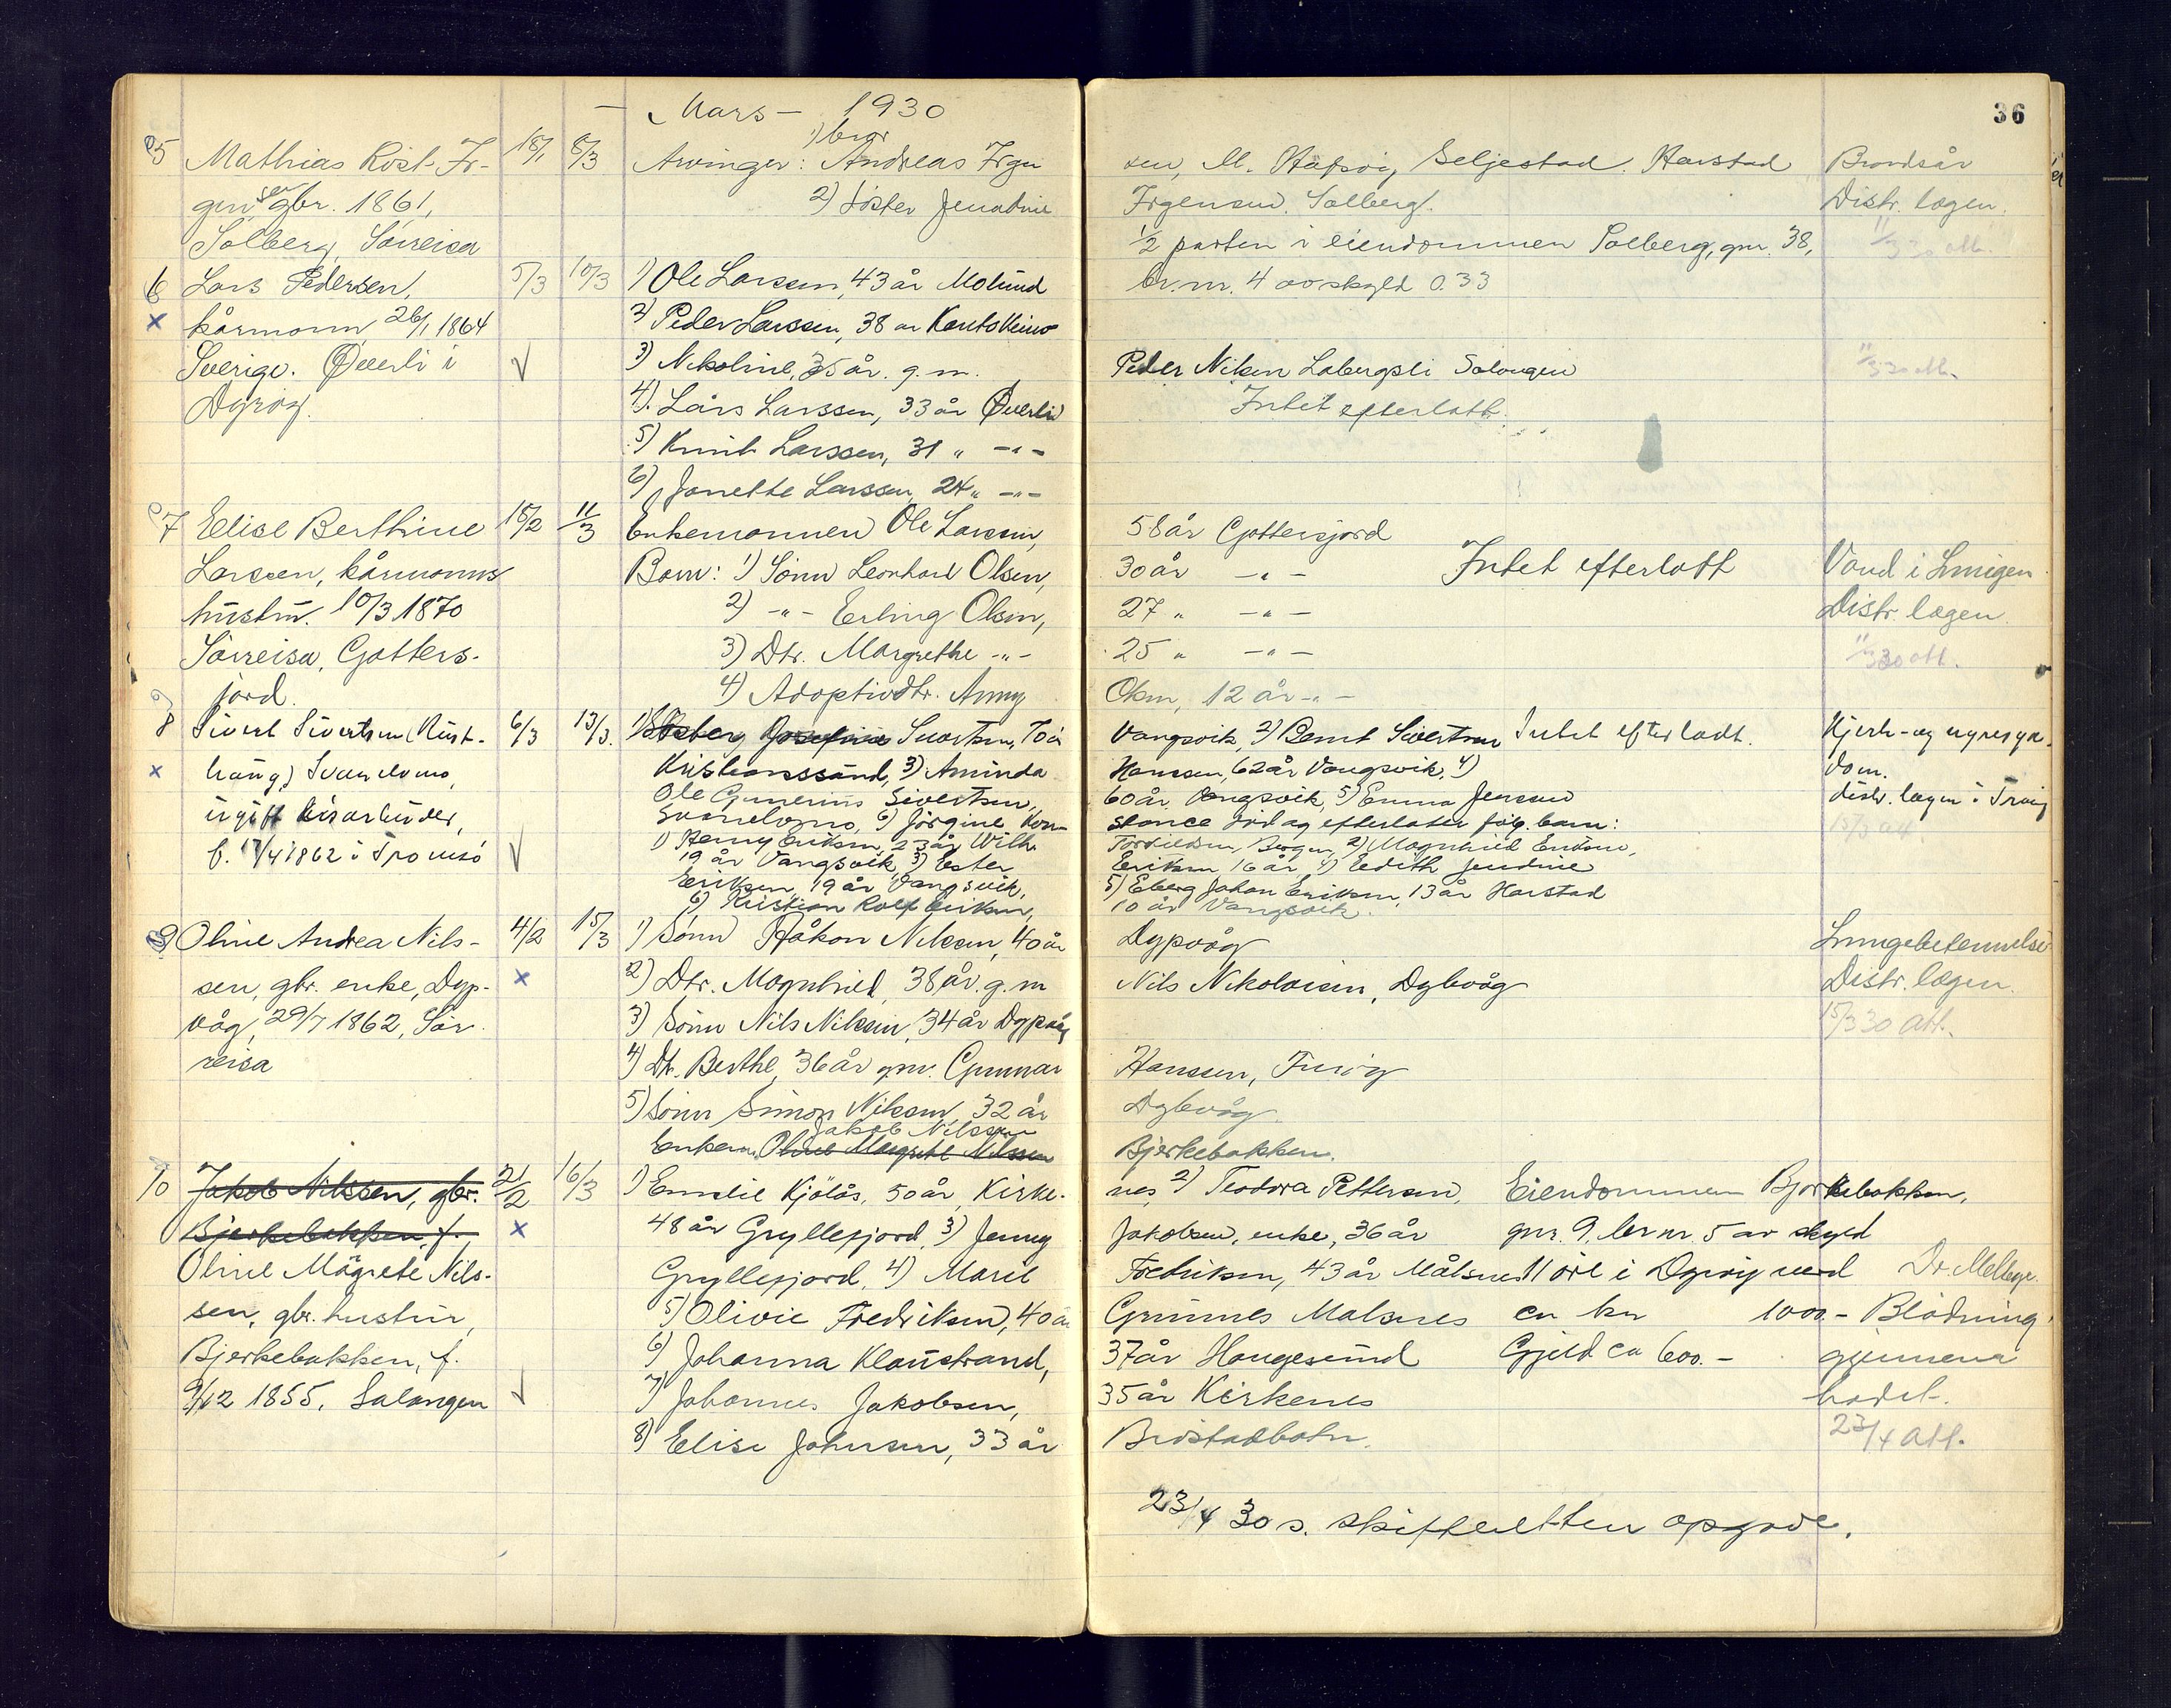 36
- Mars - 1930
5 Mathias Kost. Ir-
gens gbr. 1861,
Solberg, Sørreisa
18/1 8/3
1) bror
Arvinger: Andreas Irgen
2) Søster Jenadine
sen, M. Seljestad. Harstad
Irgensen. Solberg.
1/2 parten i eiendommen Solberg, gnr. 38,
br.nr. 4 av skyld 0.33
Brandsår
Distr. lægen.
11/3 30 att.
6 Lars Pedersen,
x kårmann, 26/1 1864
Sverige. Øverli i
Dyrøy.
5/3 10/3
√
1) Ole Larssen, 43 år Molund
2) Peder Larssen, 38 år Kautokeino
3) Nikoline, 35 år. g. m.
4) Lars Larssen, 33 år Øverli
5) Knut Larssen, 31 " -"-
6) Janette Larssen, 24 " -"-
Peder Nilsen Labergsli Salangen
Intet efterlatt.
11/3 30 att.
7 Elise Berthine
Larssen, kårmanns
hustru. 10/3 1870
Sørreisa, Gotters-
jord.
15/2 11/3
Enkemannen Ole Larssen,
Barn: 1) Sønn Leonhard Olsen,
2) -"- Erling Olsen,
3) Dtr. Margrethe -"-
4) Adoptivdtr. Anny
58 år Gottersjord
30 år -"- Intet efterlatt
27 " -"-
25 " -"-
Olsen, 12 år -"-
Vand i Lungen
Distr. lægen.
11/3 30 att.
8 Sivert Sivertsen (Aust-
x haug) Svanelvmo,
ugift
f. 17/4 1862 i Tromsø
6/3 13/3.
√
1) Søster Josefine Sivertsen, 70 år
Kristianssund, 3) Aminda
Ole Gunerius Sivertsen,
Svanelvmo, 6) Jørgine Kon-
1) Henry Eriksen, 23 år Wilh.
19 år Vangsvik, 3) Ester
Eriksen, 19 år Vangsvik,
6) Kristian Rolf Eriksen,
Vangsvik, 2) Bernt Sivertsen Intet efterladt.
Hanssen, 62 år Vangsvik, 4)
60 år Vangsvik, 5) Emma Jensen
stance død og efterlater følg. barn:
Bergen, 2) Magnhild Eriksen,
Eriksen 16 år, 4) Edith Jendine
5) Eberg Johan Eriksen, 13 år Harstad
10 år Vangsvik.
Hjerte- og nyresyk-
dom.
distr. lægen i Tranøy
15/3 att.
9 Oline Andrea Nils-
sen, gbr. enke, Dyp-
våg, 29/7 1862, Sør-
reisa
4/2 15/3
x
1) Sønn Håkon Nilssen, 40 år
2) Dtr. Magnhild, 38 år. g. m
3) Sønn Nils Nilssen, 34 år Dypvåg
4) Dtr. Berthe, 36 år gm. Gunnar
5) Sønn Simon Nilssen, 32 år
Dypvåg
Nils Nikolaisen, Dybvåg
Hanssen,
Dybvåg.
Lungebetennelse
Distr. lægen.
15/3 30 att.
Jakob Nilssen
Enkem. Oline Margrete Nilssen
Bjerkebakken.
10 Jakob Nilssen, gbr.
Bjerkebakken, f.
Oline Mågrete Nils-
sen, gbr. hustru,
Bjerkebakken, f.
9/12 1855, Salangen
21/2 16/3
x
√
1) Emelie Kjølås, 50 år, Kirke-
48 år Gryllefjord, 3) Jenny
Gryllefjord, 4) Marie
5) Olivie Fredriksen, 40 år
6) Johanna Klaustrand,
7) Johannes Jakobsen,
8) Elise Johnsen, 33 år
nes, 2) Teodora Pettersen, Eiendommen Bjørkebakken,
Jakobsen, enke, 36 år gnr. 9, br nr. 5 av skyld
Fredriksen, 43 år Målsnes 11 øre i Dyrøy verd Dr. Mellbye.
Grunnes Malsnes ca kr 1000.- Blødning
37 år Haugesund Gjeld ca 600.- gjennem
35 år Kirkenes
Brøstadbotn.
23/4 att.
23/4 30 s. skifteretten opgave.